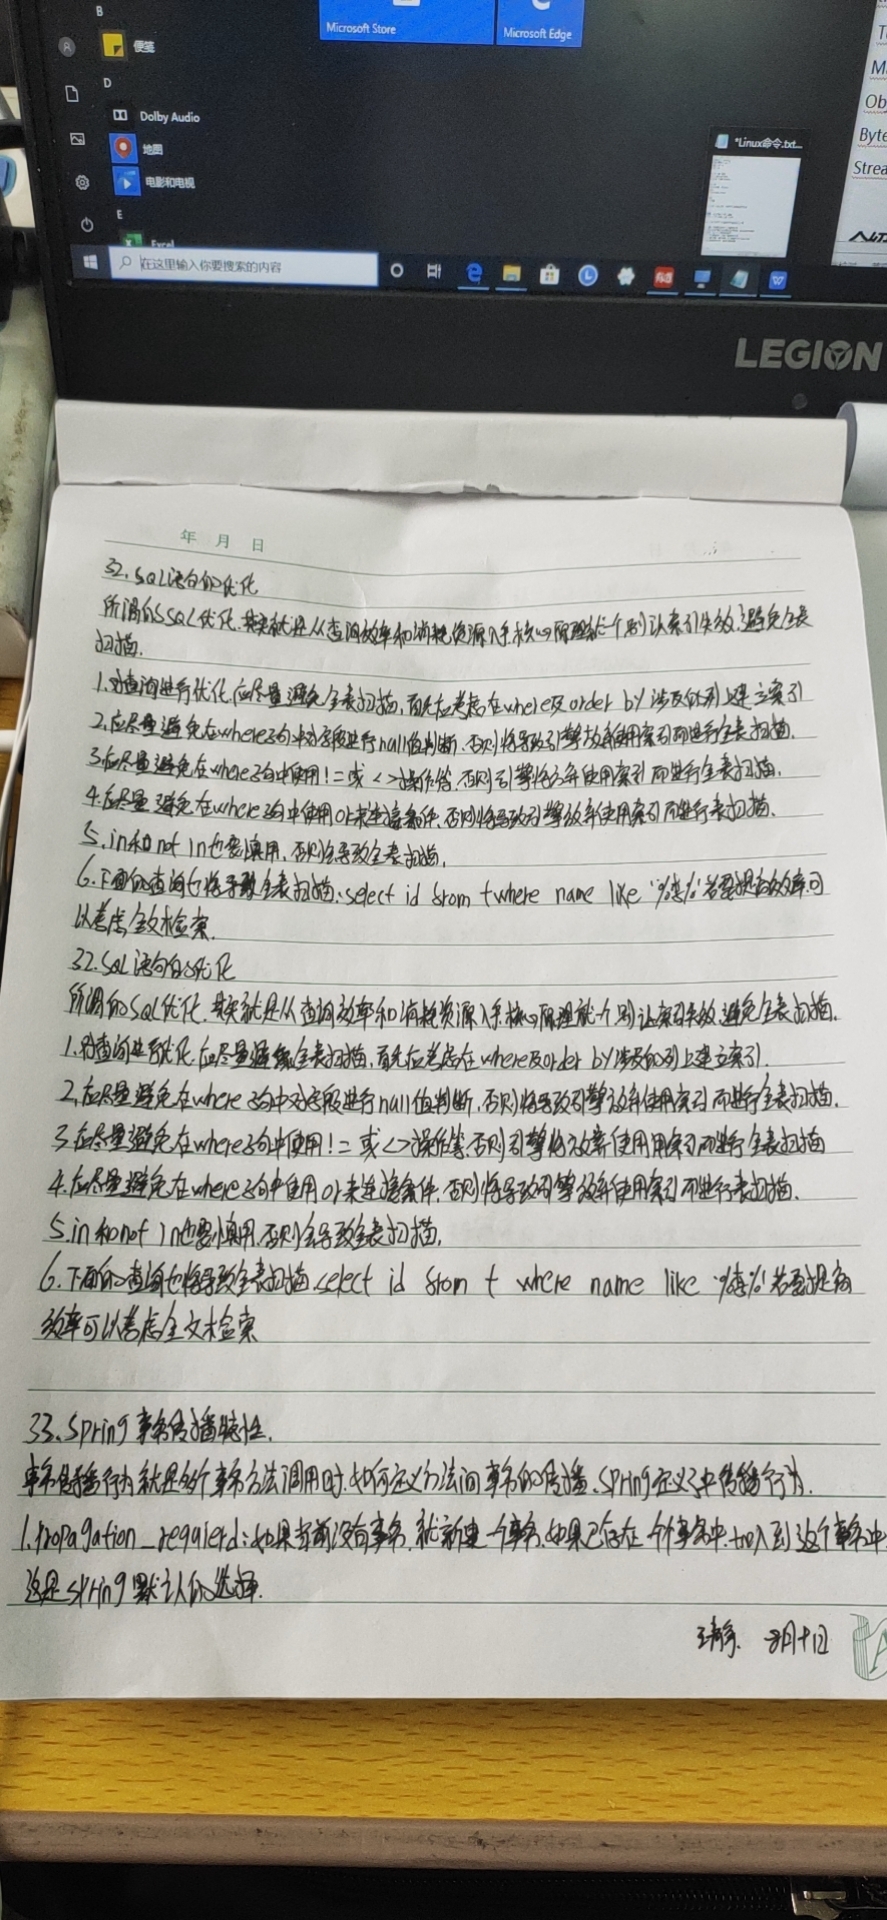 B
便笺
Microsoft Store
Microsoft Edge
D
Dolby Audio
地图
电影和电视
E
Excel
在这里输入你要搜索的内容
*Linux命令.txt...
Ob
Byte
Strea
LEGION
年 月 日
32.SQL语句的优化
所谓的SQL优化,其实就是从查询效率和消耗资源入手,核心原理就一个,别让索引失效,避免全表
扫描.
1.对查询进行优化,应尽量避免全表扫描,首先应考虑在where及order by涉及的列上建立索引
2.应尽量避免在where子句中对字段进行null值判断,否则将导致引擎放弃使用索引而进行全表扫描.
3.应尽量避免在where子句中使用!=或<>操作符,否则引擎将放弃使用索引而进行全表扫描.
4.应尽量避免在where子句中使用or来连接条件,否则将导致引擎放弃使用索引而进行表扫描.
5.in和not in也要慎用,否则会导致全表扫描.
6.下面的查询也将导致全表扫描:select id from t where name like '%李%'若要提高效率,可
以考虑全文检索.
32.SQL语句的优化
所谓的SQL优化,其实就是从查询效率和消耗资源入手,核心原理就一个,别让索引失效,避免全表扫描.
1.对查询进行优化,应尽量避免全表扫描,首先应考虑在where及order by涉及的列上建立索引.
2.应尽量避免在where子句中对字段进行null值判断,否则将导致引擎放弃使用索引而进行全表扫描.
3.应尽量避免在where子句中使用!=或<>操作符,否则引擎将放弃使用用索引而进行全表扫描
4.应尽量避免在where子句中使用or来连接条件,否则将导致引擎放弃使用索引而进行表扫描.
5.in和not in也要慎用,否则会导致全表扫描.
6.下面的查询也将导致全表扫描,select id from t where name like '%李%'若要提高
效率可以考虑全文检索
33.Spring事务传播特性.
事务传播行为就是多个事务方法调用时,如何定义方法间事务的传播.Spring定义了中传播行为.
1.propagation_requierd:如果当前没有事务,就新建一个事务,如果已存在一个事务中,加入到这个事务中.
这是spring默认的选择.
8月十日